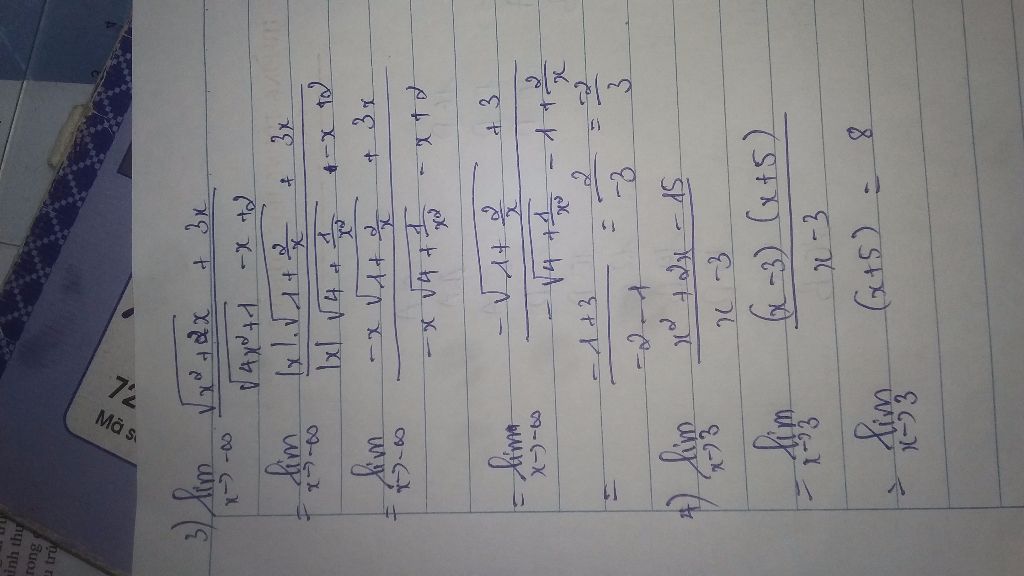 3) lim x→-∞ (√(x²+2x) + 3x) / (√(4x²+1) - x + 2)
= lim x→-∞ (|x|.√(1+2/x) + 3x) / (|x|√(4+1/x²) + - x + 2)
= lim x→-∞ (-x√(1+2/x) + 3x) / (-x√(4+1/x²) - x + 2)
= lim x→-∞ (-√(1+2/x) + 3) / (-√(4+1/x²) - 1 + 2/x)
= (-1+3) / (-2-1) = 2/-3 = -2/3
4) lim x→3 (x²+2x-15) / (x-3)
= lim x→3 ((x-3)(x+5)) / (x-3)
= lim x→3 (x+5) = 8
72
Mã s